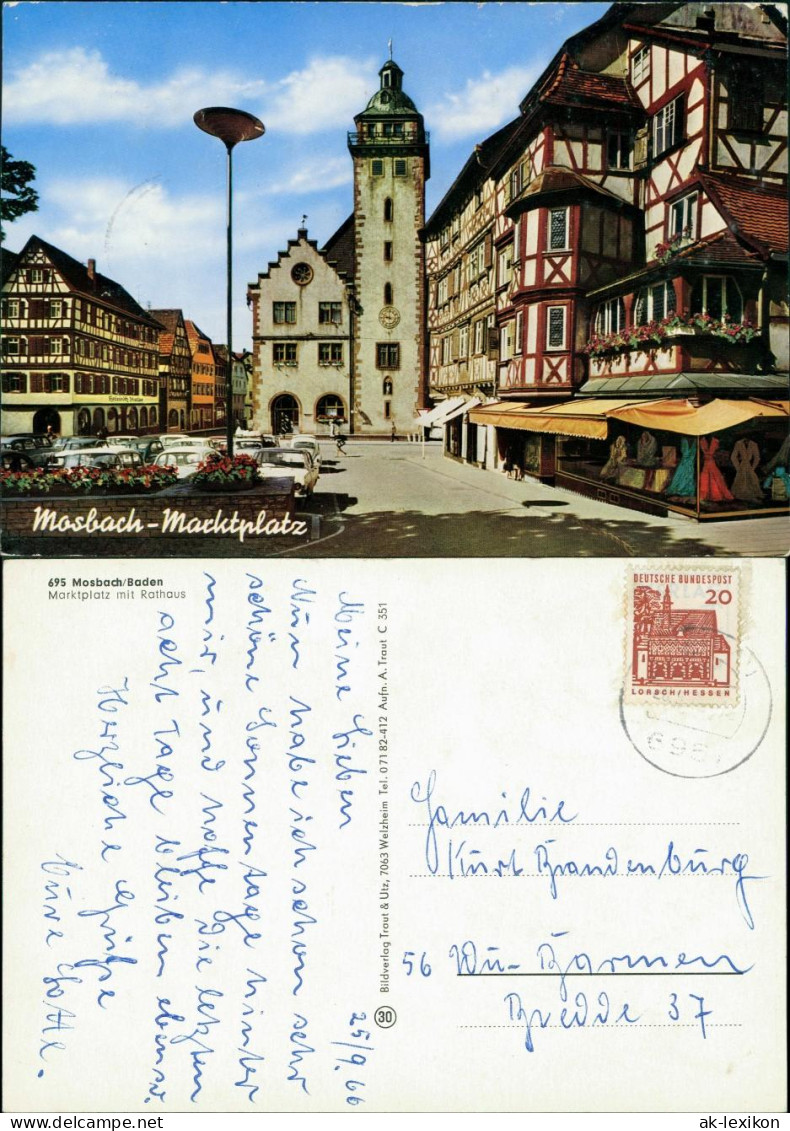 Mosbach-Marktplatz
695 Mosbach/Baden
Marktplatz mit Rathaus
25/9.66
Meine Lieben
Nun habe ich schon sehr
schöne Sonnentage hinter
mir, und hoffe die letzten
acht Tage bleiben ebenso.
Herzliche Grüße
Eure Lotte.
Bildverlag Traut & Utz, 7063 Welzheim Tel. 07182-412 Aufn. A. Traut C 351
30
DEUTSCHE BUNDESPOST
20
LORSCH/HESSEN
Familie
Kurt Brandenburg
56 Wu-Barmen
Bredde 37
ak-lexikon
www.ak-lexikon.com